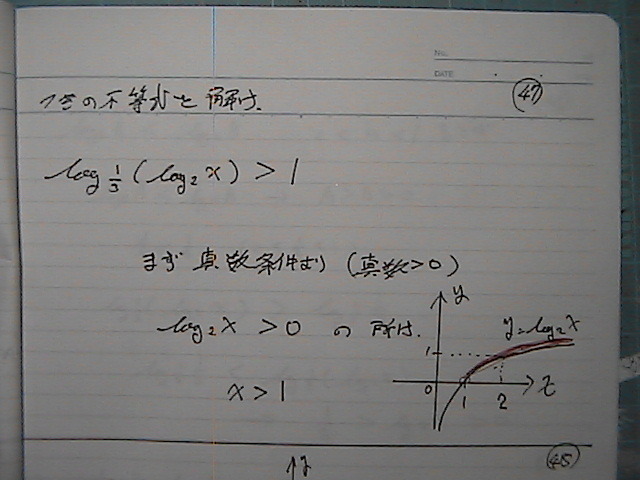 No.
DATE
つぎの不等式を解け. ㊼
log_{1/3}(log₂x) > 1
まず 真数条件より (真数>0)
log₂x > 0 の所は.
x > 1
y
y=log₂x
1
0 1 2 x
㊺
y